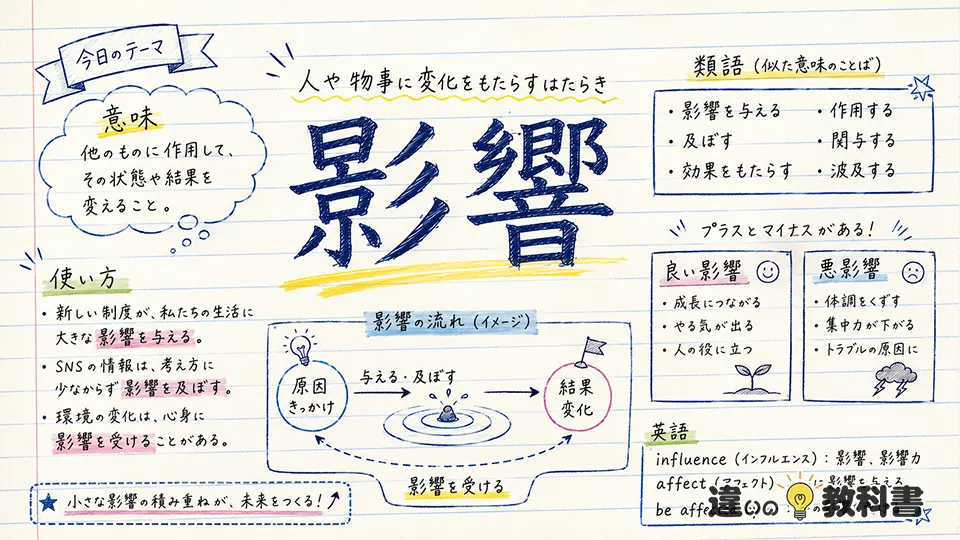 今日のテーマ
人や物事に変化をもたらすはたらき
影響
意味
他のものに作用して、
その状態や結果を
変えること。
類語 (似た意味のことば)
・影響を与える
・及ぼす
・効果をもたらす
・作用する
・関与する
・波及する
使い方
・新しい制度が、私たちの生活に
大きな影響を与える。
・SNSの情報は、考え方に
少なからず影響を及ぼす。
・環境の変化は、心身に
影響を受けることがある。
影響の流れ (イメージ)
原因
きっかけ
与える・及ぼす
結果
変化
影響を受ける
プラスとマイナスがある!
良い影響
・成長につながる
・やる気が出る
・人の役に立つ
悪影響
・体調をくずす
・集中力が下がる
・トラブルの原因に
英語
influence (インフルエンス) : 影響、影響力
affect (アフェクト) に影響を与える
be affe
違いの教科書
★ 小さな影響の積み重ねが、未来をつくる!